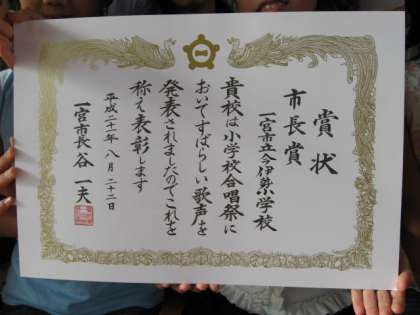 賞状
市長賞
一宮市立今伊勢小学校
貴校は小学校合唱祭に
おいてすばらしい歌声を
発表されましたのでこれを
称え表彰します
平成二十一年八月二十二日
一宮市長谷一夫